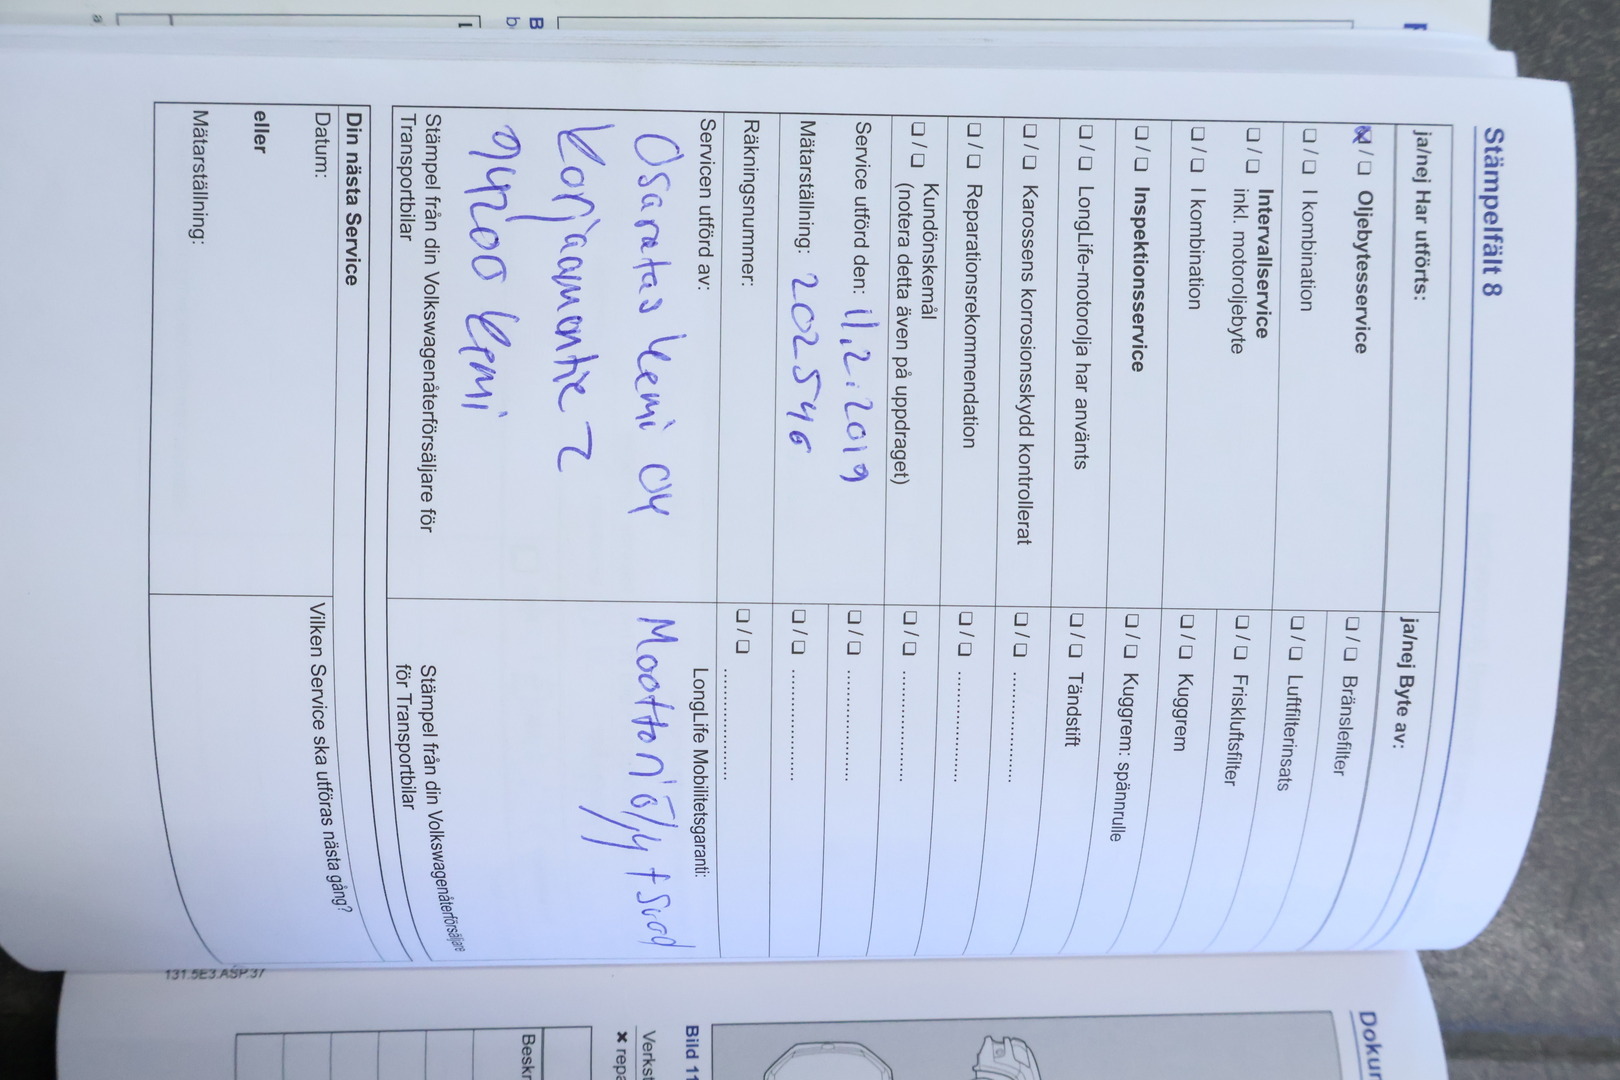 Stämpelfält 8
ja/nej Har utförts:
☒ / ❑ Oljebytesservice
❑ / ❑ I kombination
❑ / ❑ Intervallservice
inkl. motoroljebyte
❑ / ❑ I kombination
❑ / ❑ Inspektionsservice
❑ / ❑ LongLife-motorolja har använts
❑ / ❑ Karossens korrosionsskydd kontrollerat
❑ / ❑ Reparationsrekommendation
❑ / ❑ Kundönskemål
(notera detta även på uppdraget)
Service utförd den: 11.2.2019
Mätarställning: 202546
Räkningsnummer:
Servicen utförd av:
Osaratas Kemi oy
Korjaamontie 2
94200 Kemi
Stämpel från din Volkswagenåterförsäljare för
Transportbilar
ja/nej Byte av:
❑ / ❑ Bränslefilter
❑ / ❑ Luftfilterinsats
❑ / ❑ Friskluftsfilter
❑ / ❑ Kuggrem
❑ / ❑ Kuggrem: spännrulle
❑ / ❑ Tändstift
❑ / ❑ ....................
❑ / ❑ ....................
❑ / ❑ ....................
❑ / ❑ ....................
❑ / ❑ ....................
❑ / ❑ ....................
LongLife Mobilitetsgaranti:
Moottoriöljy + suod
Stämpel från din Volkswagenåterförsäljare
för Transportbilar
Din nästa Service
Datum:
eller
Mätarställning:
Vilken Service ska utföras nästa gång?
131.5E3.ASP.37
Bild 11